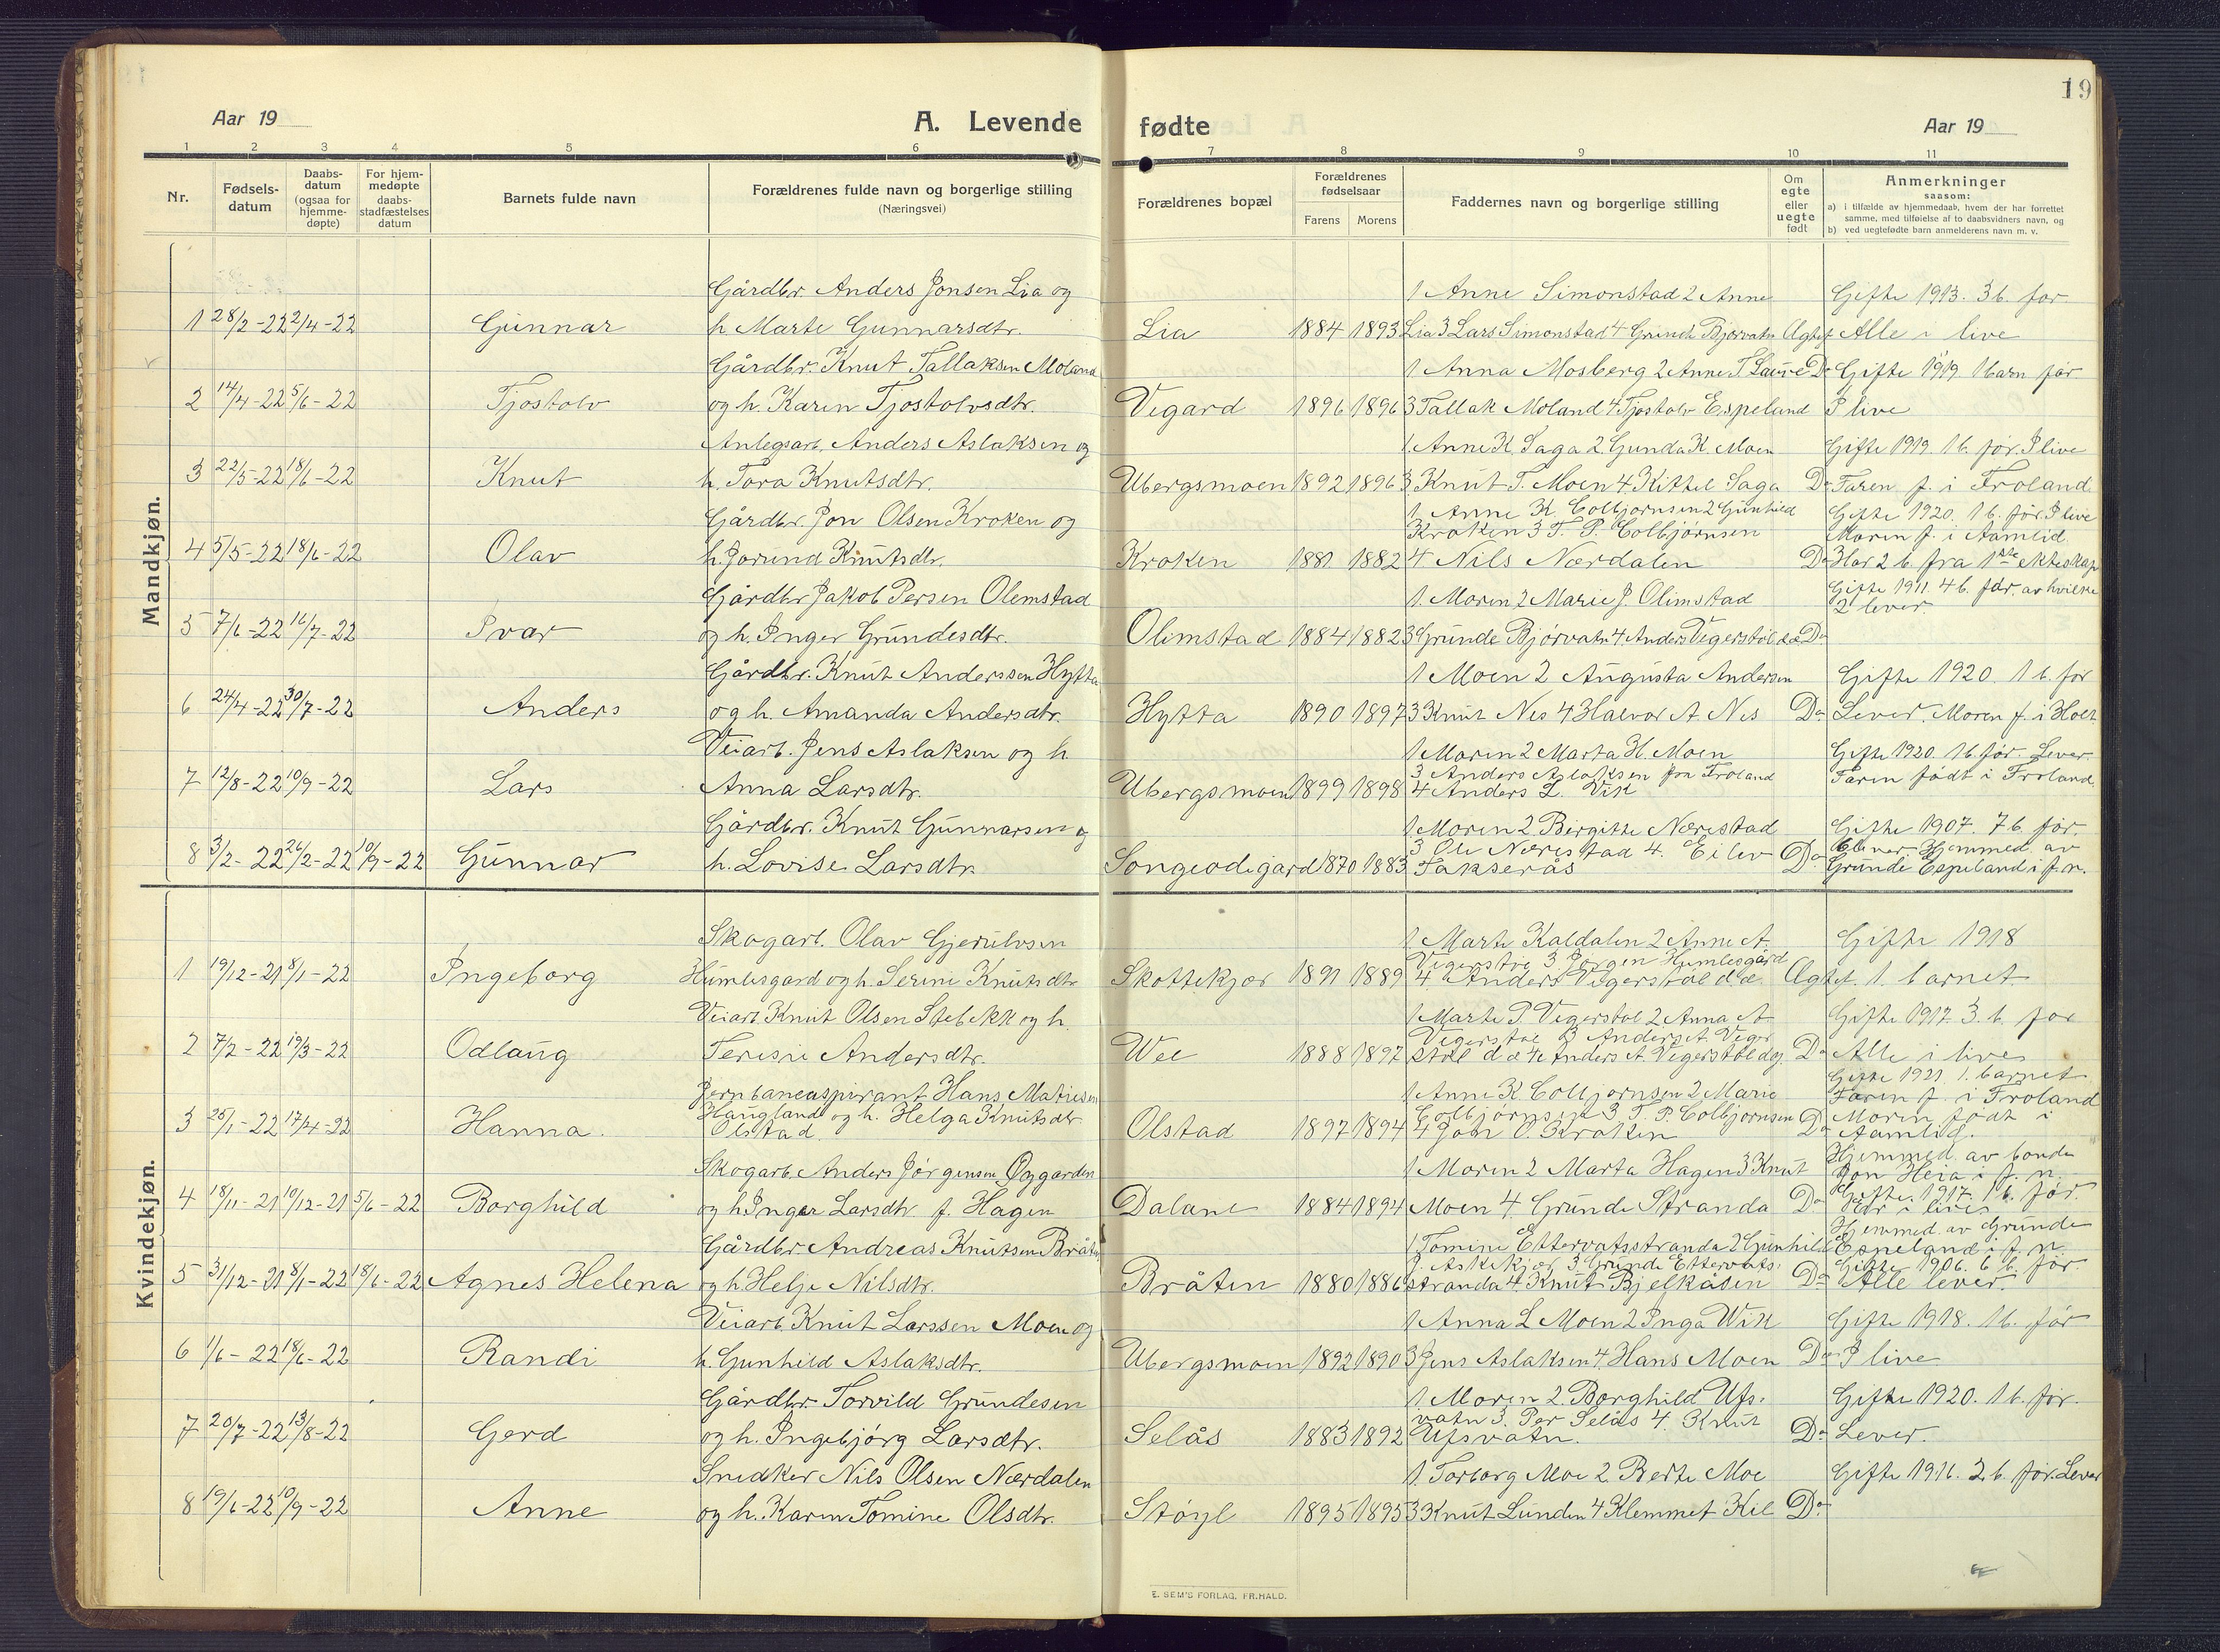 19
Aar 19
A. Levende
fødte
Aar 19
1 2 3 4 5 6 7 8 9 10 11
Nr.
Fødsels-
datum
Daabs-
datum
(ogsaa for
hjemme-
døpte)
For hjem-
medøpte
daabs-
stadfæstelses
datum
Barnets fulde navn
Forældrenes fulde navn og borgerlige stilling
(Næringsvei)
Forældrenes bopæl
Forældrenes
fødselsaar
Farens Morens
Faddernes navn og borgerlige stilling
Om
egte
eller
uegte
født
Anmerkninger
saasom:
a) i tilfælde av hjemmedaab, hvem der har forrettet
samme, med tilføielse af to daabsvidners navn, og
b) ved uegtefødte barn anmelderens navn m. v.
Mandkjøn.
Gårdbr. Anders Jonsen Lia og
1 28/2-22 2/4-22 Gunnar h. Marte Gunnarsdtr.
Lia 1884 1893
1 Anne Simonstad 2 Anne
Lia 3 Lars Simonstad 4 Grunde Bjorvatn Ægtef.
Gifte 1913. 3 b. før
Alle i live
Gårdbr. Knut Tallaksen Moland
2 14/4-22 5/6-22 Tjostolv og h. Karen Tjostolvsdtr.
Vegard 1896 1896
1 Anna Mosberg 2 Anne T. Lauve Do
3 Tallak Moland 4 Tjostolv Espeland
Gifte 1919. 1 barn før
I live
Anlegsarb. Anders Aslaksen og
3 22/5-22 18/6-22 Knut h. Tora Knutsdtr.
Ubergsmoen 1892 1896
1. Anne K. Saga 2 Gunda K. Moen
3 Knut T. Moen 4. Kittel Saga Do
Gifte 1919. 1 b. før. I live
Faren f. i Froland
Gårdbr. Jon Olsen Kroken og
4 5/5-22 18/6-22 Olav h. Jorund Knutsdtr.
Kroken 1881 1882
1. Anne K. Colbjørnsen 2 Gunhild
Kroken 3 T. P. Colbjørnsen
4 Nils Nærdalen Do
Gifte 1920. 1 b. før. I live
Moren f. i Aamlid.
Har 2 b. fra 1ste ekteskap
Gårdbr Jakob Persen Olimstad
5 7/6-22 16/7-22 Ivar og h. Inger Grundesdtr.
Olimstad 1884 1882
1. Moren 2 Marie J. Olimstad
3 Grunde Bjørvatn 4. Anders Vegerstøl d.æ Do
Gifte 1911. 4 b. før, av hvilke
2 lever.
Gårdbr. Knut Anderssen Hytta
6 24/4-22 30/7-22 Anders og h. Amanda Andersdtr.
Hytta 1890 1897
1 Moen 2 Augusta Andersen
3 Knut Nes 4 Halvor A. Nes Do
Gifte 1920. 1 b. før
Lever. Moren f. i Holt
Veiarb. Jens Aslaksen og h.
7 12/8-22 10/9-22 Lars Anna Larsdtr.
Ubergsmoen 1899 1898
1 Moren 2 Marta H. Moen
3 Anders Aslaksen fra Froland
4 Anders L. Vik
Gifte 1920. 1 b. før. Lever.
Faren født i Froland.
Gårdbr. Knut Gunnarsen og
8 3/2-22 26/2-22 10/9-22 Gunnar h. Lovise Larsdtr.
Songeodegard 1870 1883
1. Moren 2. Birgitte Nærestad
3 Ole Nærestad 4. Eilev Do
Takserås
Gifte 1907. 7 b. før.
Hjemmed. av
Grunde Espeland i f. n.
Kvindekjøn.
Skogarb. Olav Gjerulvsen
1 19/12-21 8/1-22 Ingeborg Humlesgard og h. Serine Knutsdtr
Skottekjær 1891 1889
1 Marte Kaldalen 2 Anne A.
Vegerstøl 3 Jørgen Humlesgård
4 Anders Vegerstøl d.æ Ægtef.
Gifte 1918
1. barnet.
Veiarb. Knut Olsen Stebekk og h.
2 7/2-22 19/3-22 Odlaug Terisie Andersdtr.
Wee 1888 1897
1 Marte P. Vegerstøl 2 Anna A
Vegerstøl 3 Anders A. Veger
støl d æ 4 Anders A. Vegerstøl d y. Do
Gifte 1917. 3. b. før
Alle i live
Jernbaneaspirant Hans Matiesen
3 25/1-22 17/4-22 Hanna. Haugland og h. Helga Knutsdtr
Olstad.
Olstad 1897 1894
1 Anne K Colbjørnsen 2 Marie
Colbjørnsen 3 T. P. Colbjørnsen Do
4 Joh. O. Kroken
Gifte 1921. 1. barnet
Faren f. i Froland
Moren født i
Aamlid.
Skogarb. Anders Jørgensen Øygarden
4 18/11-21 10/12-21 5/6-22 Borghild og h Inger Larsdtr f. Hagen
Dalane 1884 1894
1 Moren 2 Marta Hagen 3 Knut
Moen 4. Grunde Stranda Do
Hjemmed. av bonde
Jon Heia i f. n.
Gifte 1917. 1 b. før.
Gårdbr. Andreas Knutsen Bråten
5 31/12-21 8/1-22 18/6-22 Agnes Helena og h Helje Nilsdtr.
Bråten 1880 1886
1 Tomine Ettervatsstranda 2 Gunhild
J. Askekjær 3 Grunde Ettervats-
stranda 4 Knut Bjelkåsen Do
Hjemmed. av Grunde
Espeland i f. n.
Gifte 1906. 6 b. før
Alle lever.
Veiarb. Knut Larssen Moen og
6 1/6-22 18/6-22 Randi h. Gunhild Aslaksdtr.
Ubergsmoen 1892 1890
1 Anna L Moen 2 Inga Wik
3 Jens Aslaksen 4. Hans Moen Do
Gifte 1918. 1 b. før
I live
Gårdbr. Torvild Grundesen
7 20/7-22 13/8-22 Gerd og h. Ingebjørg Larsdtr.
Selås 1883 1892
1. Moren 2. Borghild Ufs-
vatn 3. Per Selås 4. Knut
Ufsvatn. Do
Gifte 1920. 1 b. før.
Lever.
Snedker Nils Olsen Nærdalen
8 19/6-22 10/9-22 Anne og h. Karen Tomine Olsdtr.
Støyl 1895 1895
1. Torborg Moe 2 Berte Moe
3 Knut Lunden 4 Klemmet Kil Do
Gifte 1916. 2 b. før. Lever
E. SEM'S FORLAG, FR.HALD.